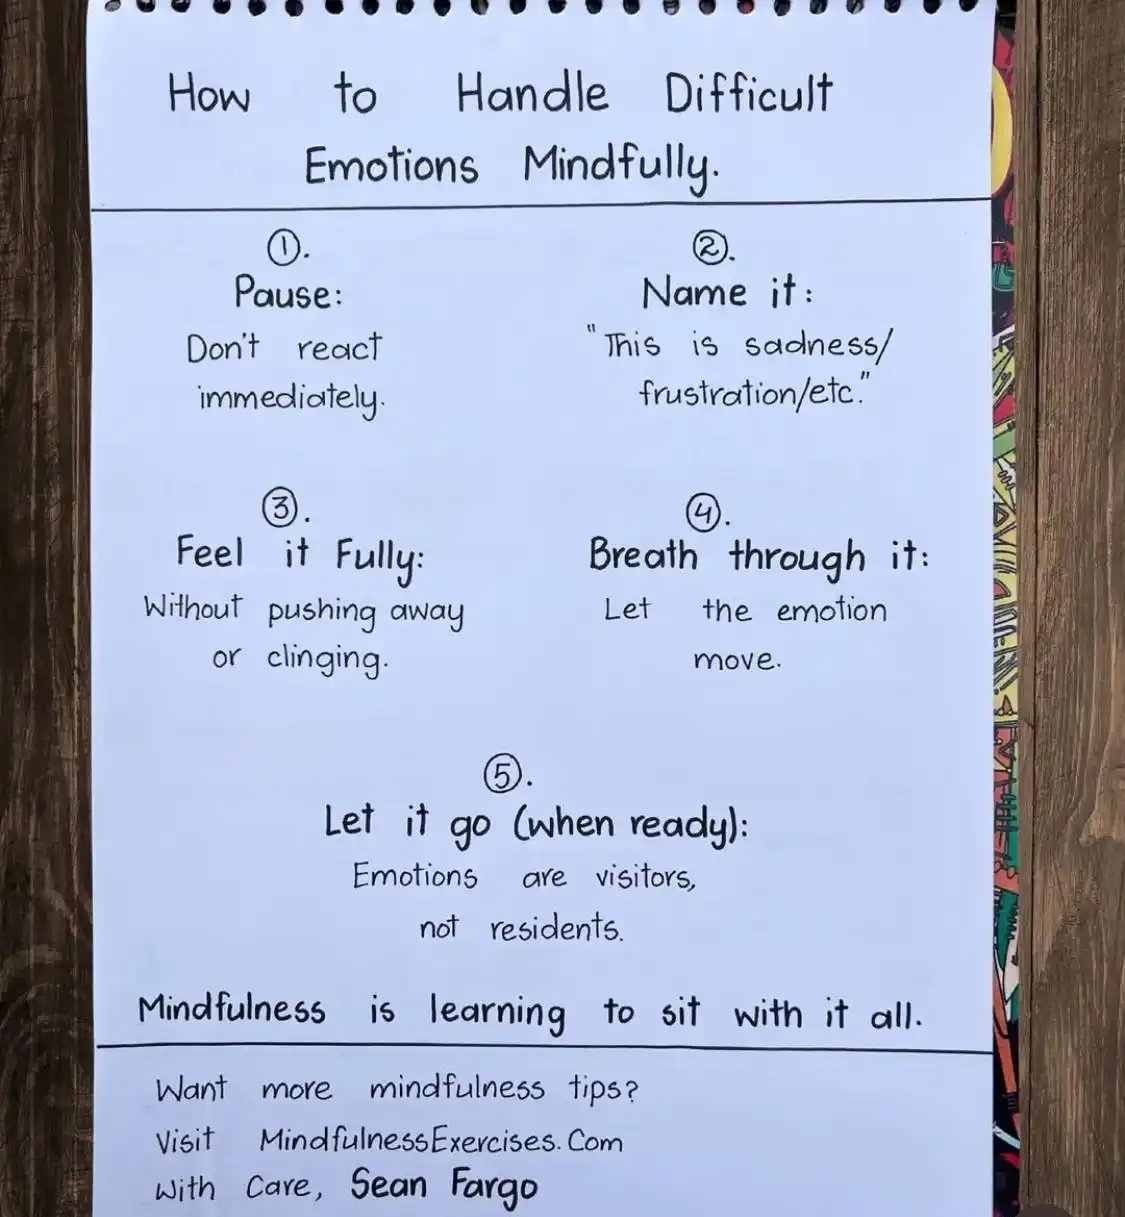 How to Handle Difficult
Emotions Mindfully.
①.
Pause:
Don't react
immediately.
②.
Name it:
"This is sadness/
frustration/etc."
③.
Feel it Fully:
Without pushing away
or clinging.
④.
Breath through it:
Let the emotion
move.
⑤.
Let it go (when ready):
Emotions are visitors,
not residents.
Mindfulness is learning to sit with it all.
Want more mindfulness tips?
Visit MindfulnessExercises.Com
With Care, Sean Fargo